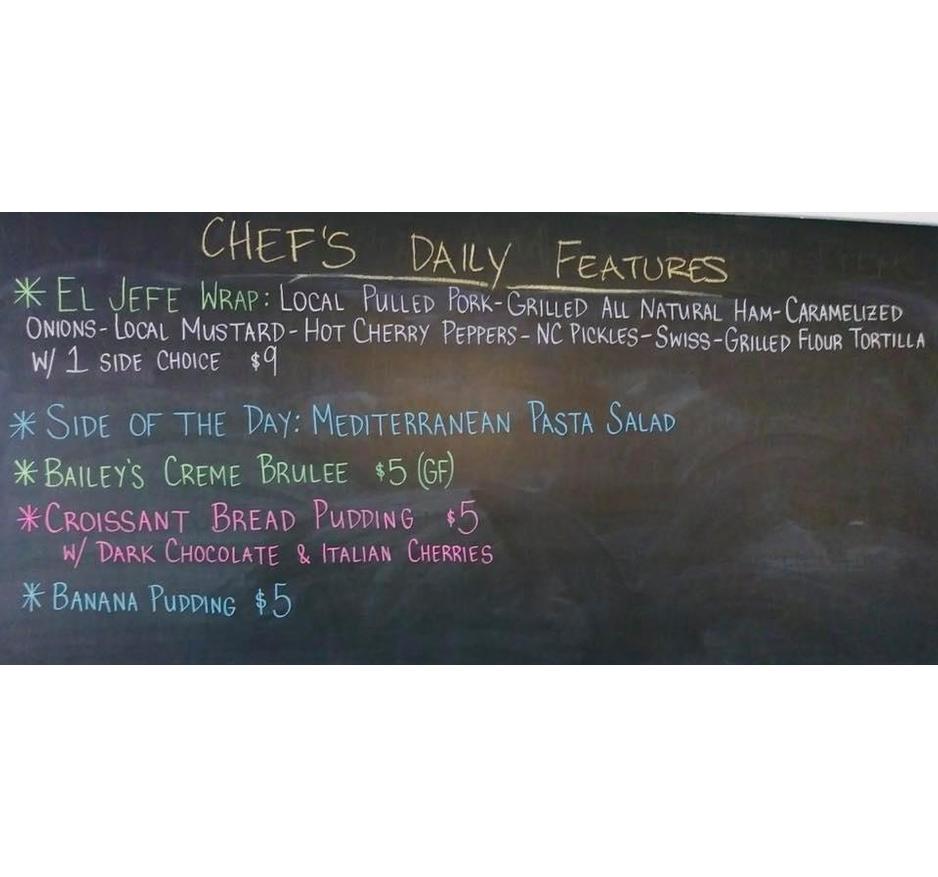 CHEF'S DAILY FEATURES
* EL JEFE WRAP: LOCAL PULLED PORK-GRILLED ALL NATURAL HAM-CARAMELIZED
ONIONS-LOCAL MUSTARD-HOT CHERRY PEPPERS-NC PICKLES-SWISS-GRILLED FLOUR TORTILLA
W/ 1 SIDE CHOICE $9
* SIDE OF THE DAY: MEDITERRANEAN PASTA SALAD
* BAILEY'S CREME BRULEE $5 (GF)
* CROISSANT BREAD PUDDING $5
W/ DARK CHOCOLATE & ITALIAN CHERRIES
* BANANA PUDDING $5